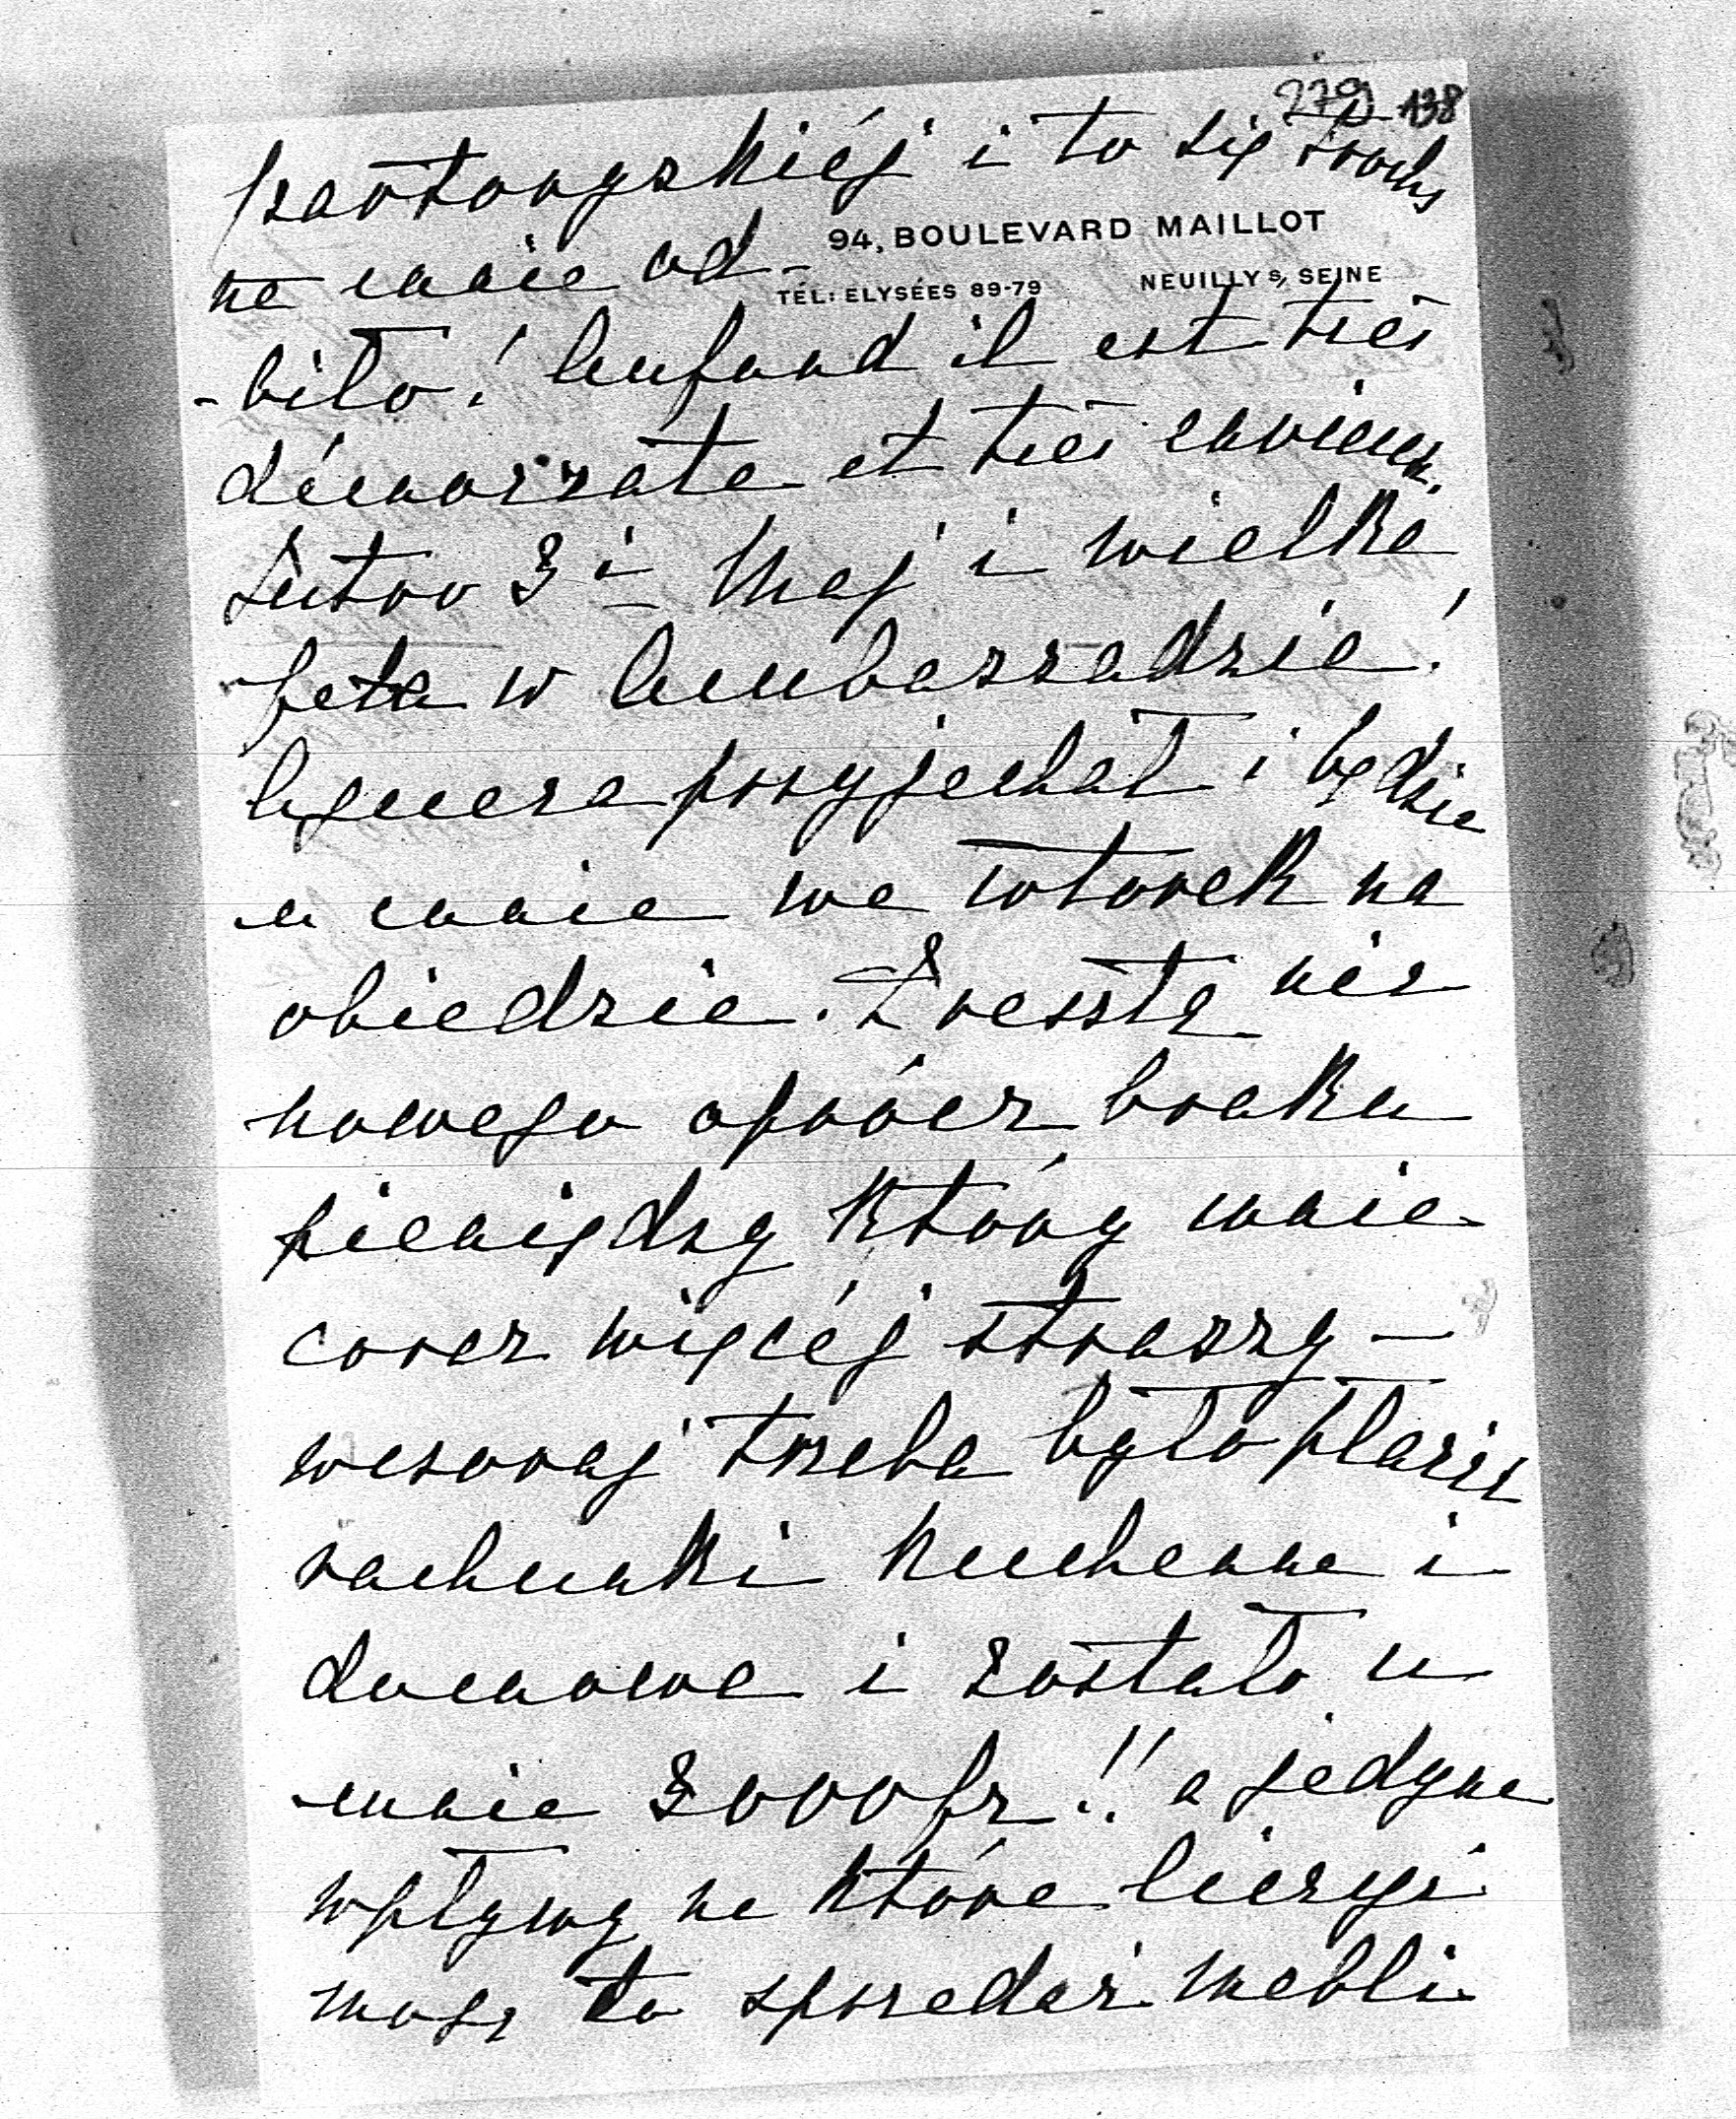 279 138
szantongskiéj i to się trochę
94, BOULEVARD MAILLOT
TÉL: ELYSÉES 89-79 NEUILLY S/ SEINE
na mnie od-
-biło! Aufond il est très
démocrate et très envieux.
Jutro 3i Maj i wielka
feta w Ambassadzie!
przyjechał i będzie
u mnie we wtorek na
obiedzie. Zresztą nic
nowego oprócz braku
pieniędzy który mnie
coraz więcéj straszy —
wczoraj trzeba było płacić
rachunki kuchenne i
domowe i zostało u
mnie 3000 fr!! a jedyne
wpływy na które liczyć
mogę to sprzedaż mebli